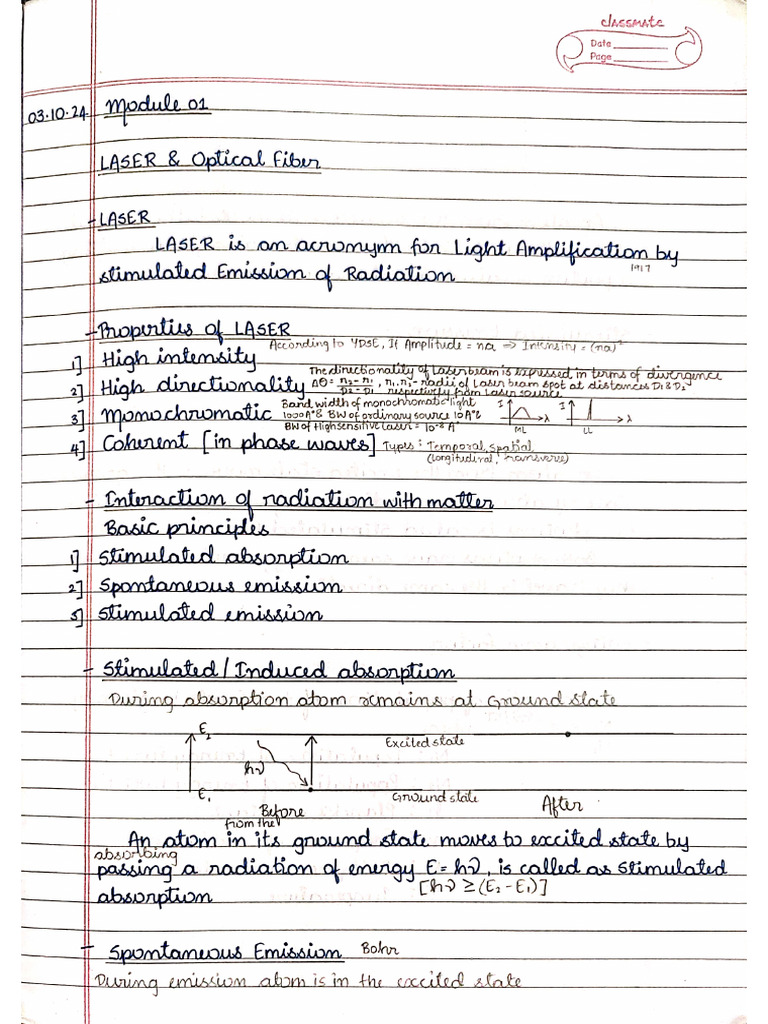 classmate
Date
Page
03.10.24 Module 01
LASER & Optical Fiber
- LASER
LASER is an acronymn for Light Amplification by
1917
stimulated Emission of Radiation
- Properties of LASER
According to YDSE, If Amplitude = na ⇒ Intensity = (na)²
1] High intensity
The directionality of Laser beam is expressed in terms of divergence
2] High directionality Δθ = r₂ - r₁ / D₂ - D₁ , r₁, r₂ - radii of Laser beam spot at distances D₁ & D₂
respectively from Laser source
Band width of monochromatic light
3] Monochromatic 1000A° & BW of ordinary source 10A° &
BW of High sensitive Laser = 10⁻⁸ A°
I λ ML I λ LL
4] Coherent [in phase waves] Types: Temporal, spatial,
(longitudinal, transverse)
- Interaction of radiation with matter
Basic principles
1] Stimulated absorption
2] Spontaneous emission
3] Stimulated emission
- Stimulated / Induced absorption
During absorption atom remains at Ground state
E₂
Excited state
hν
E₁
Ground state
Before
After
from the
An atom in its ground state moves to excited state by
absorbing
passing a radiation of energy E = hν, is called as Stimulated
[hν ≥ (E₂ - E₁)]
absorption
- Spontaneous Emission Bohr
During emission atom is in the excited state